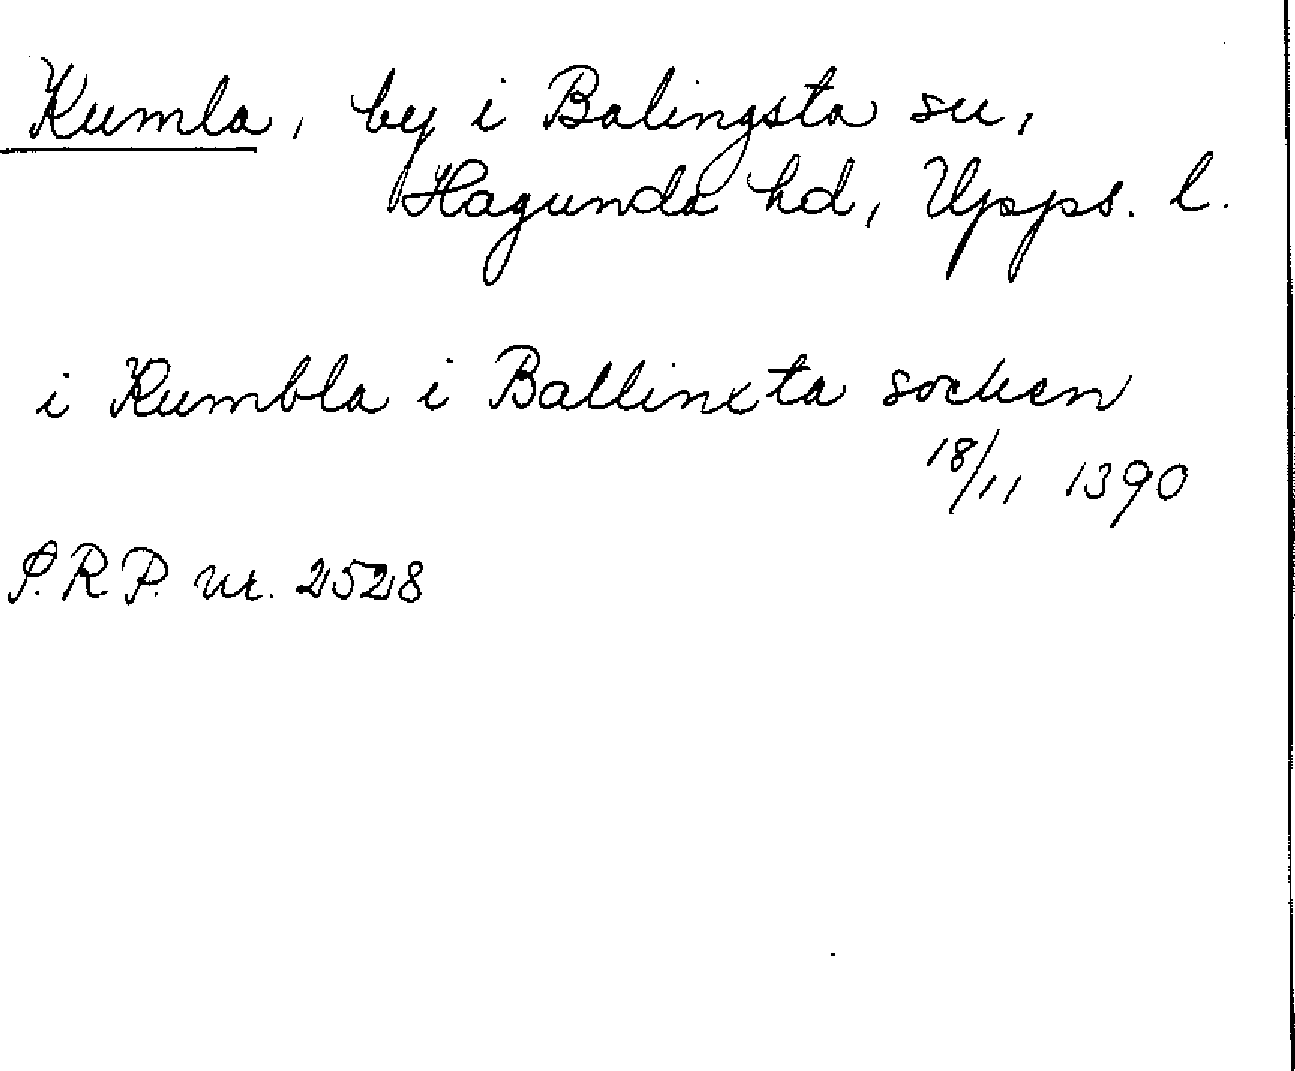 Kumla, by i Balingsta sn,
Hagunda hd, Upps. l.
i Kumbla i Ballinxta socken
18/11 1390
S.R.P. nr. 2528